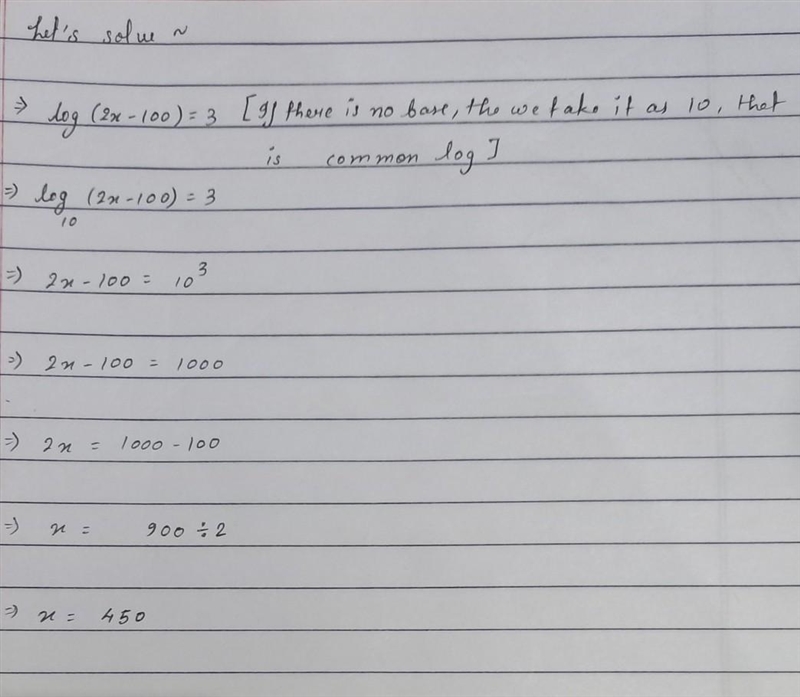 Let's solve ~
⇒ log (2x - 100) = 3 [If there is no base, the we take it as 10, that
is common log]
⇒ log₁₀ (2x - 100) = 3
⇒ 2x - 100 = 10³
⇒ 2x - 100 = 1000
⇒ 2x = 1000 - 100
⇒ x = 900 ÷ 2
⇒ x = 450